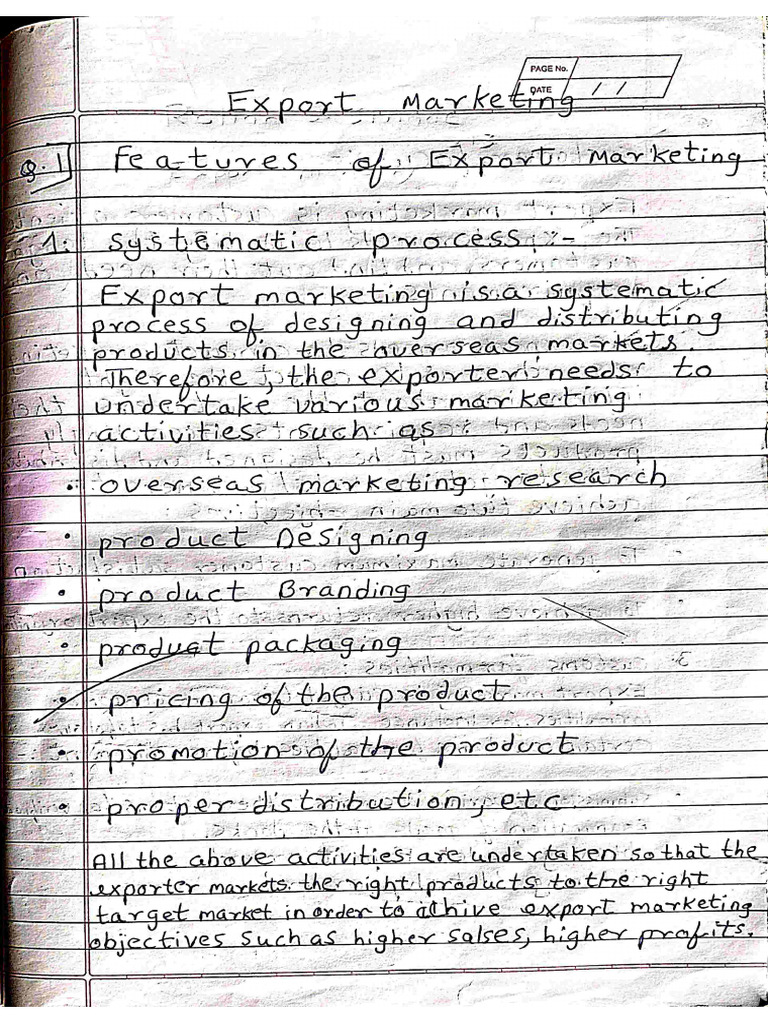 PAGE No.
DATE / /
Export Marketing
Q.1 Features of Export Marketing
1. Systematic process :-
Export marketing is a systematic
process of designing and distributing
products in the overseas markets.
Therefore, the exporter needs to
undertake various marketing
activities such as
• overseas marketing research
• product Designing
• product Branding
• product packaging
• pricing of the product
• promotion of the product
• proper distribution, etc
All the above activities are undertaken so that the
exporter markets the right products to the right
target market in order to achive export marketing
objectives such as higher salses, higher profits.